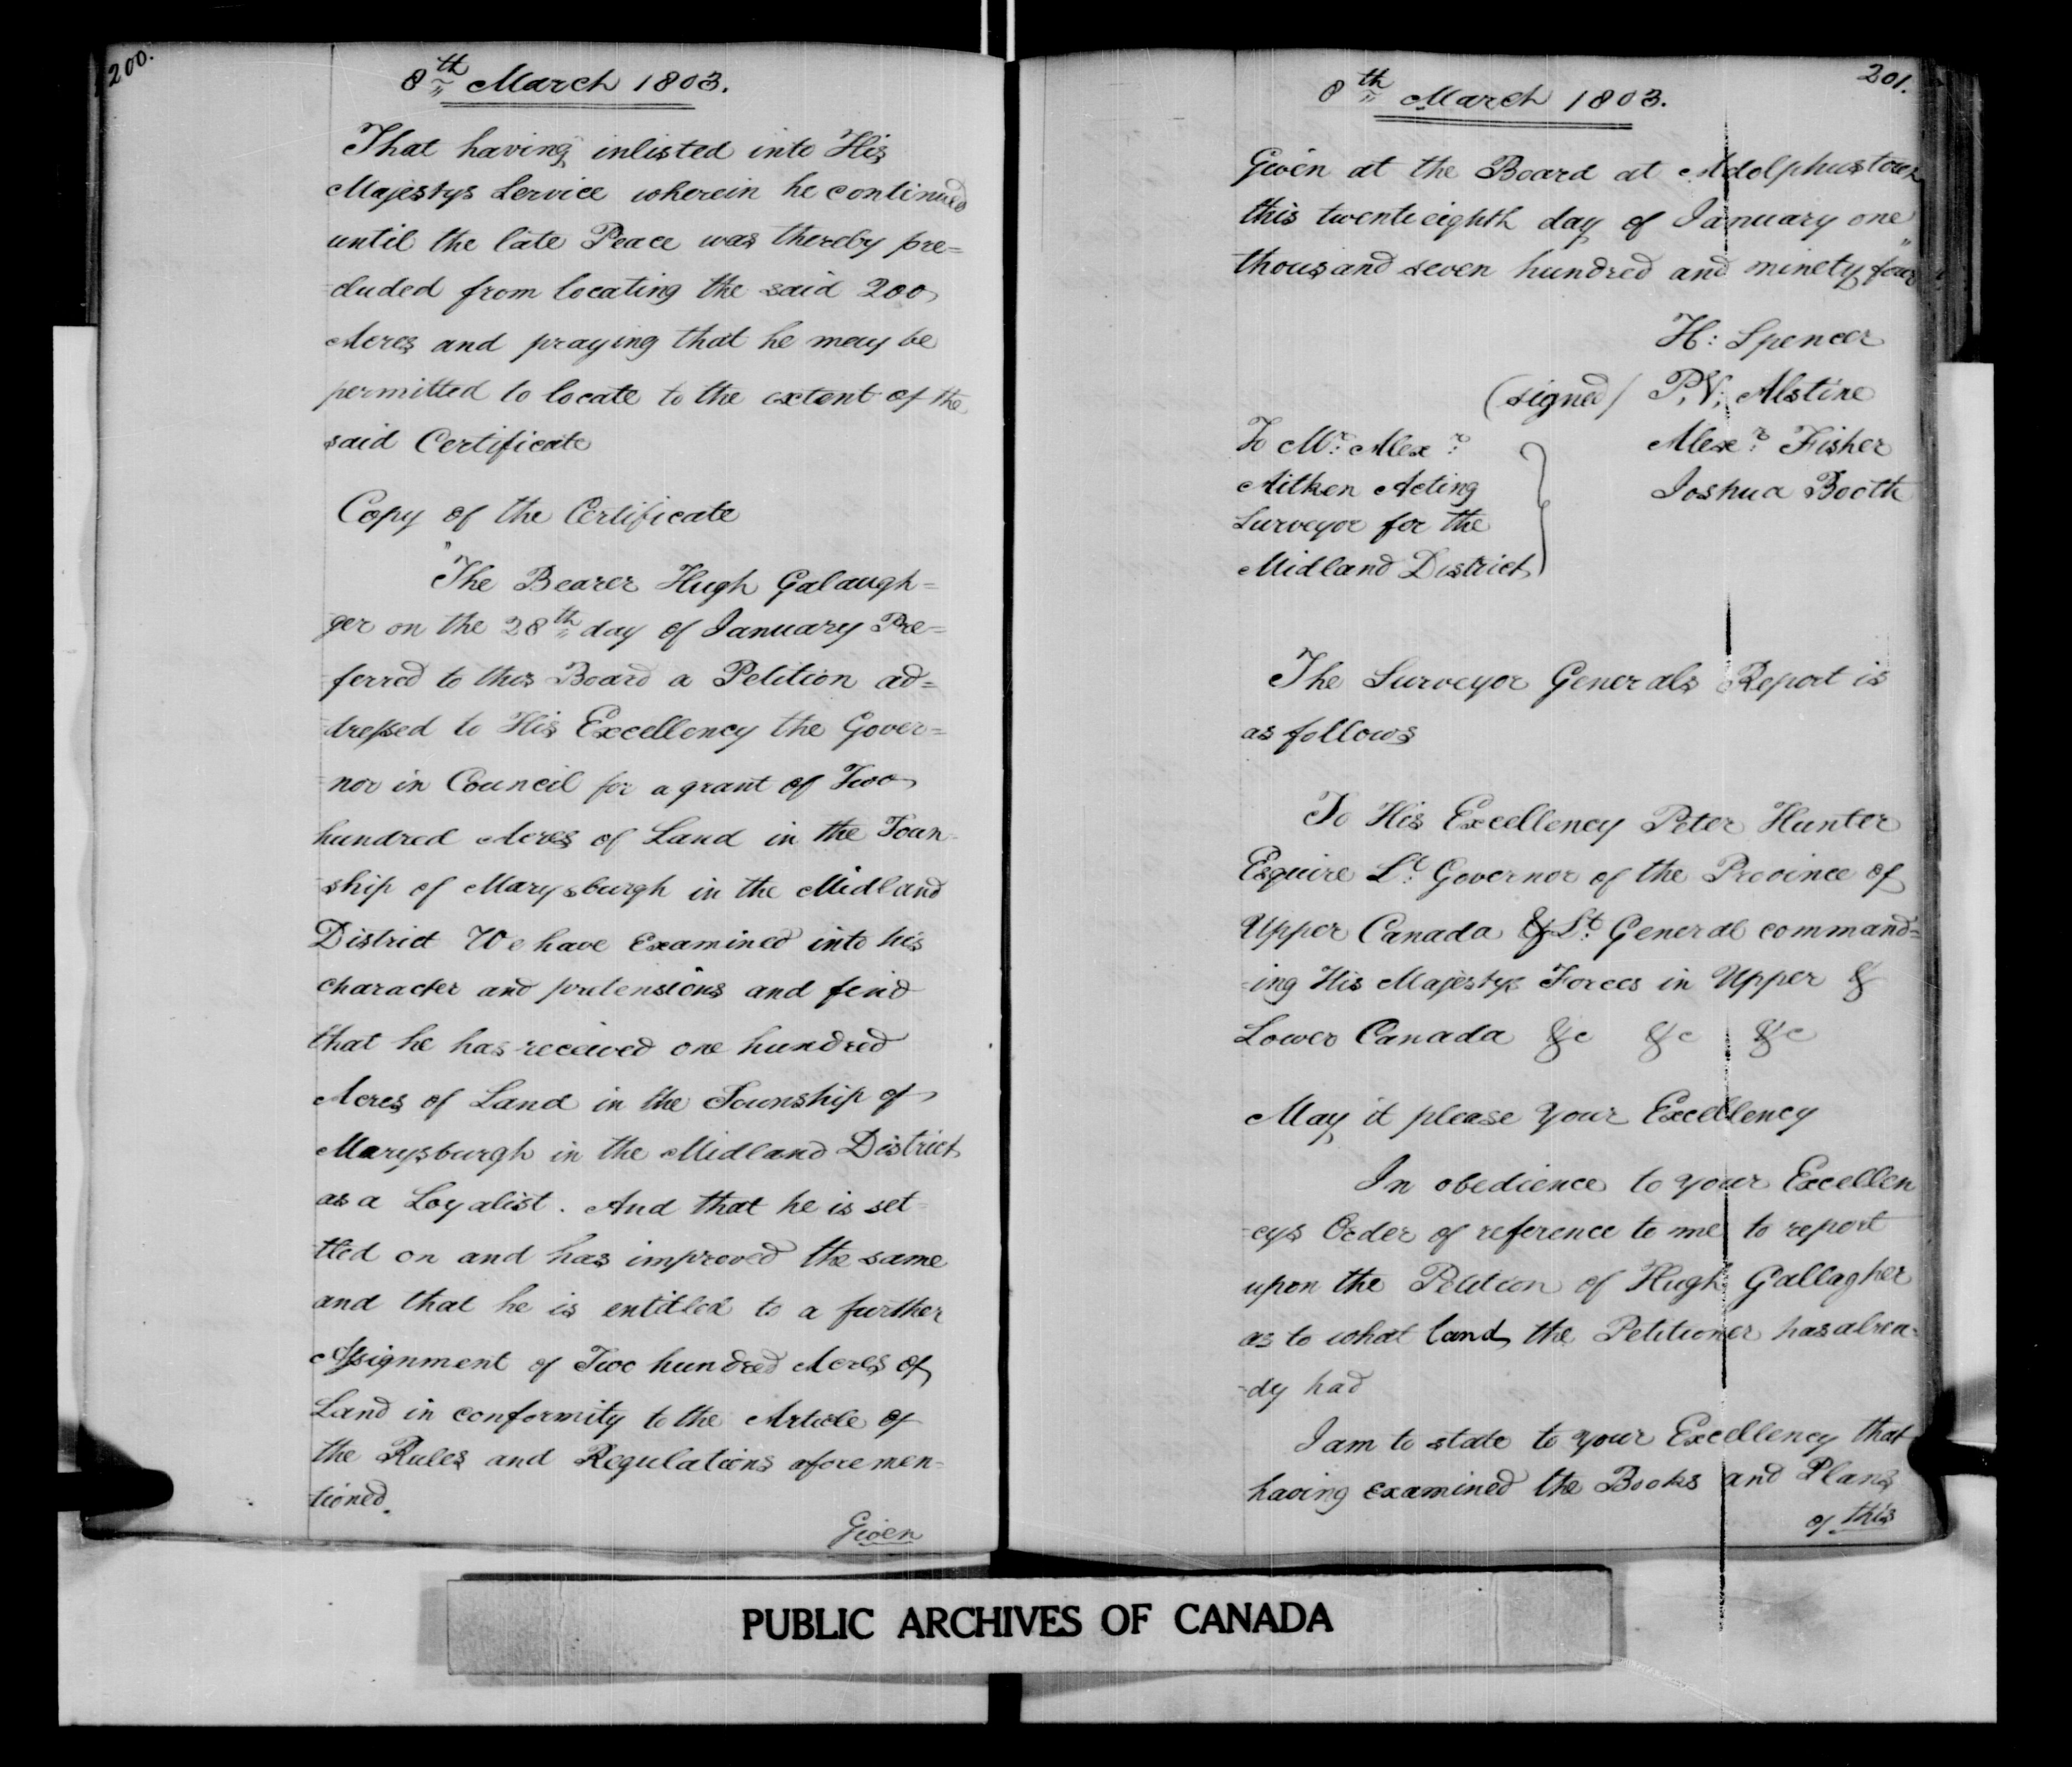 200.
8th March 1803.
That having inlisted into His
Majestys Service wherein he continued
until the late Peace was thereby pre=
=cluded from locating the said 200
Acres and praying that he may be
permitted to locate to the extent of the
said Certificate
Copy of the Certificate
"The Bearer Hugh Galaugh=
ger on the 28th day of January Pre=
=ferred to this Board a Petition ad=
=dressed to His Excellency the Gover=
=nor in Council for a grant of Two
hundred Acres of Land in the Town-
-ship of Marysburgh in the Midland
District We have Examined into his
character and pretensions and find
that he has received one hundred
Acres of Land in the Township of
Marysburgh in the Midland District
as a Loyalist. And that he is set-
-tled on and has improved the same
and that he is entitled to a further
Assignment of Two hundred Acres of
Land in conformity to the Article of
the Rules and Regulations aforemen-
tioned.
Given
201.
8th March 1803.
Given at the Board at Adolphustown
this twenti eighth day of January one
thousand seven hundred and ninety four"
H: Spencer
(signed) P. V. Alstine
To Mr. Alexr.
Alexr. Fisher
Aitken Acting
Joshua Booth
Surveyor for the
Midland District
The Surveyor Generals Report is
as follows
To His Excellency Peter Hunter
Esquire Lt. Governor of the Province of
Upper Canada & Lt. General command=
-ing His Majestys Forces in Upper &
Lower Canada &c &c &c
May it please your Excellency
In obedience to your Excellen
-cys Order of reference to me to report
upon the Petition of Hugh Gallagher
as to what land the Petitioner has alrea-
-dy had
I am to state to your Excellency that
having examined the Books and Plans
of this
PUBLIC ARCHIVES OF CANADA